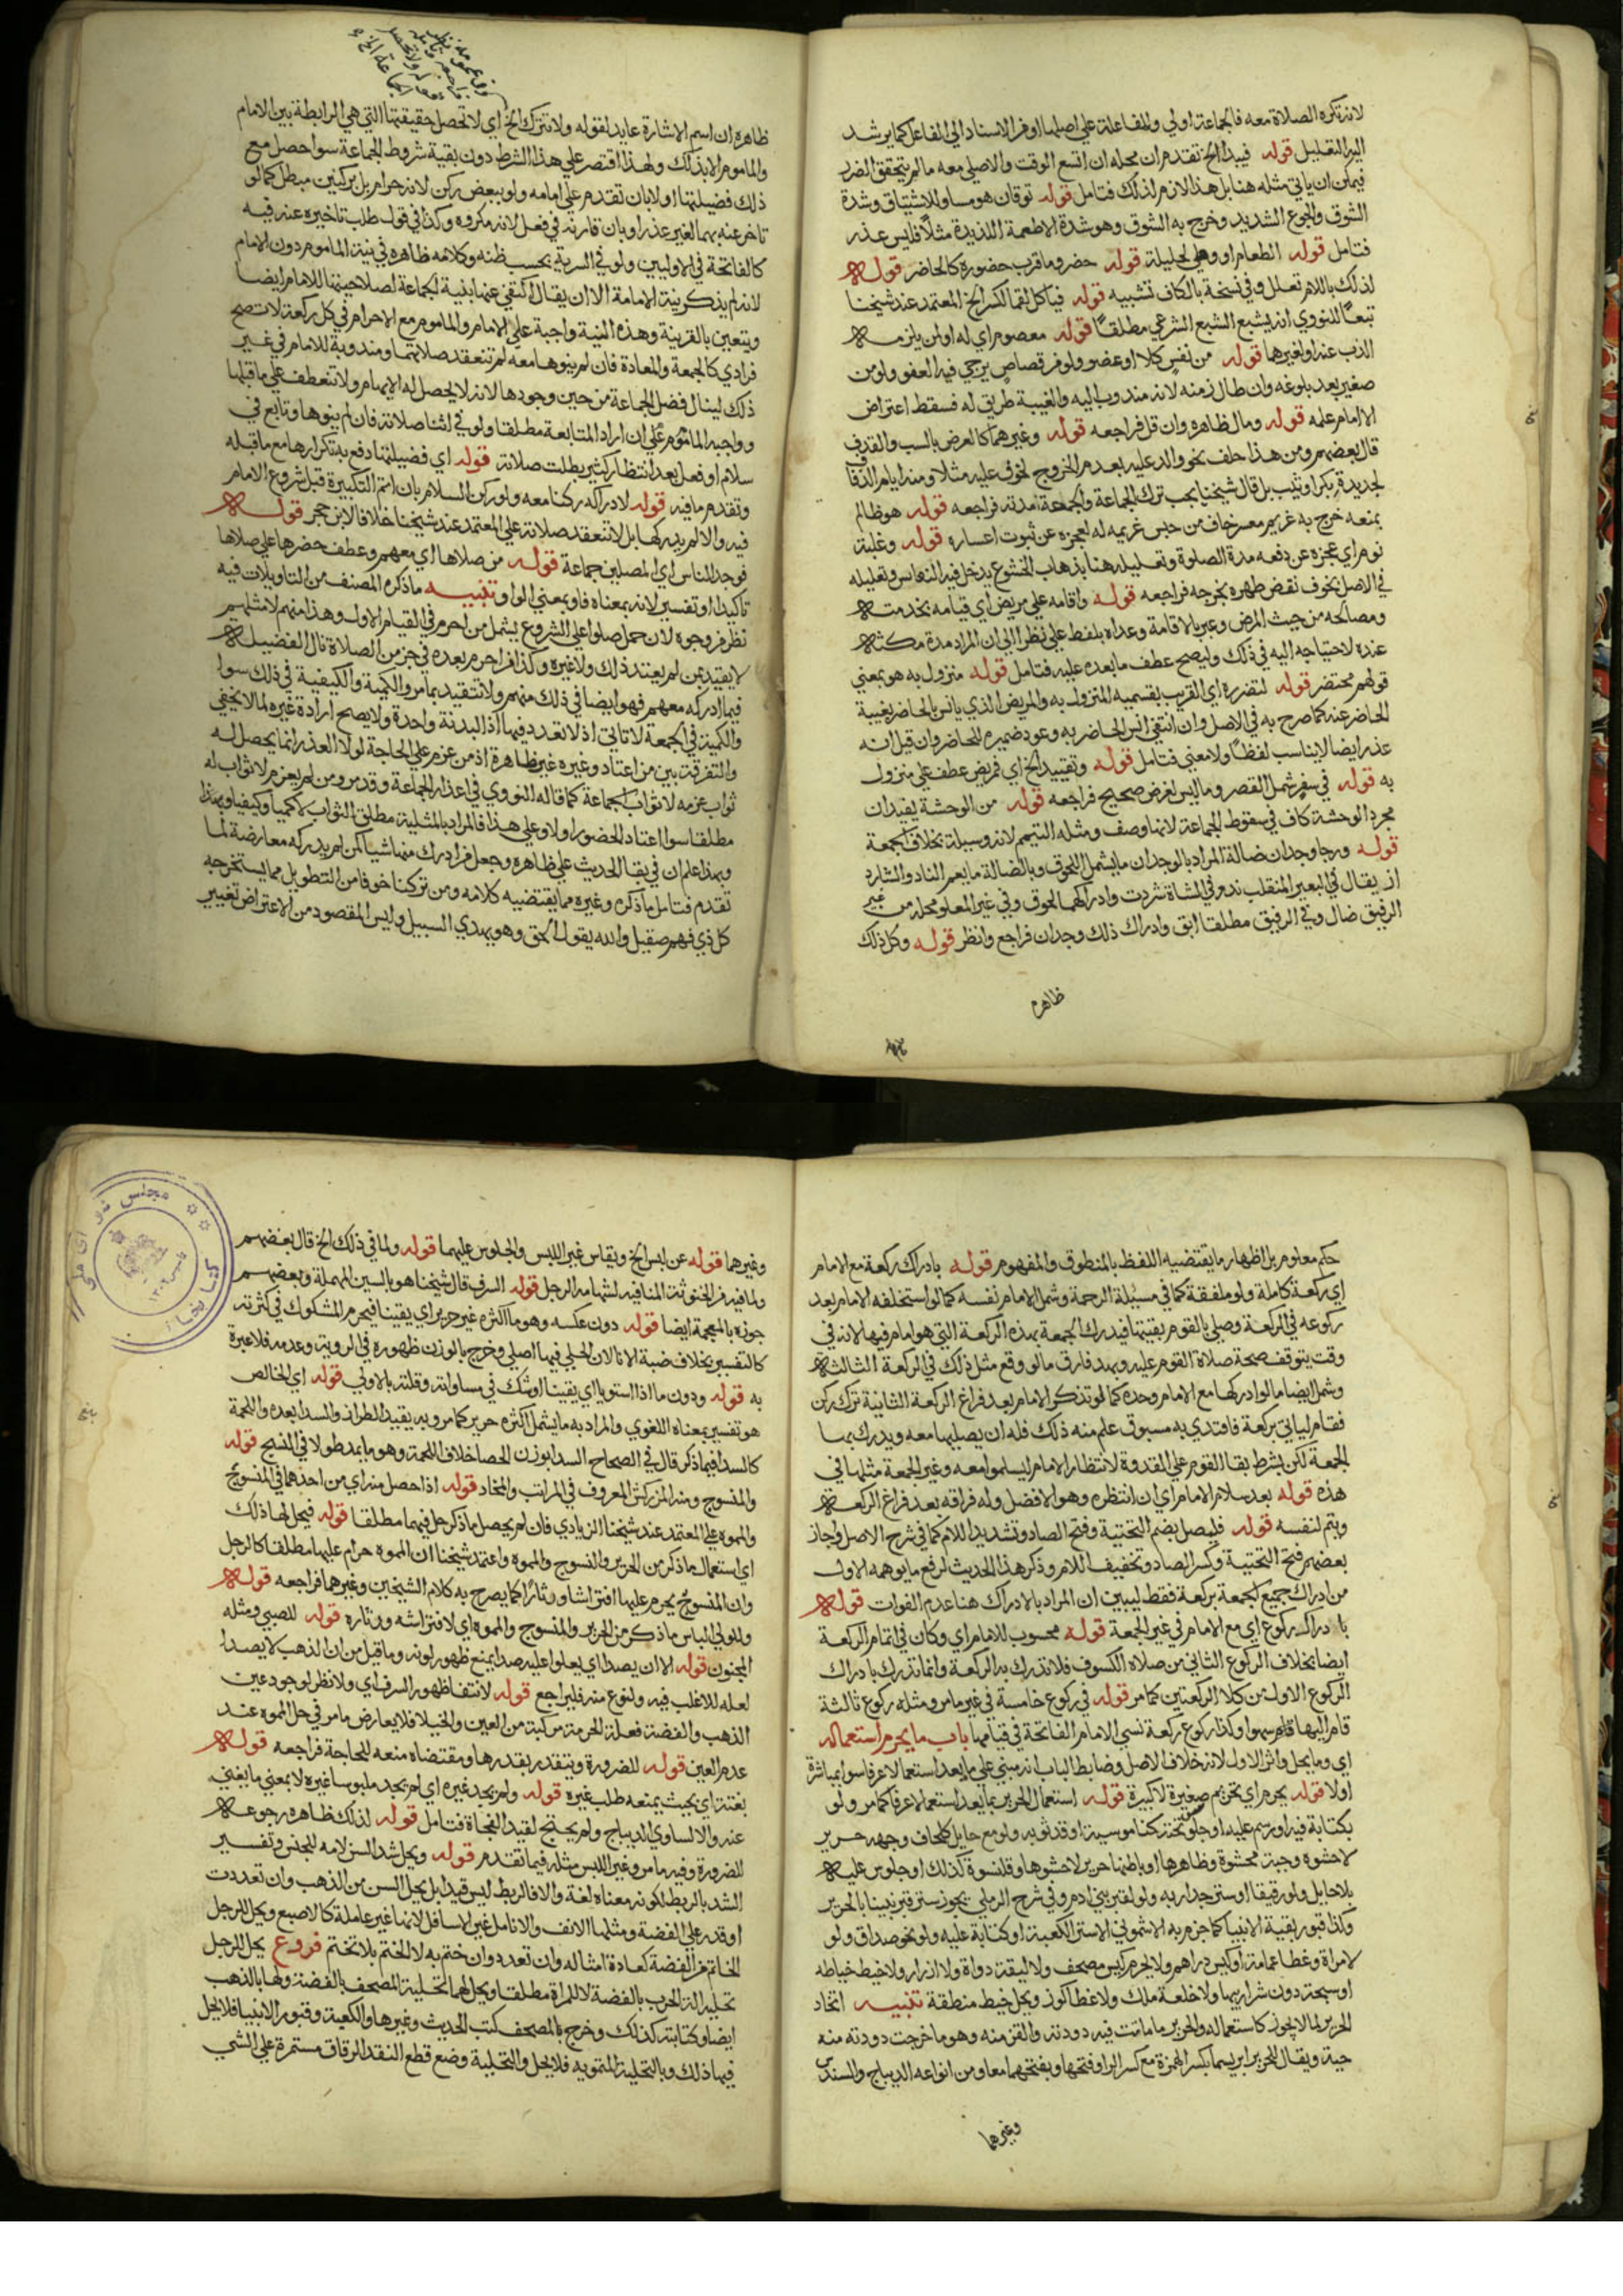 لانه تكره الصلاة معه فالجماعة اولي والمفاعلة علي اصلها اوفر الاسناد الي الفاعل كما يرشد
اليه التعليل قوله فيبدا الخ تقدم ان محله ان اتسع الوقت والا صلي معه مالم يتحقق الضرر
فيمكن ان ياتي مثله هنا بل هذا لازم لذلك فتامل قوله توقان هو مساو للاشتياق وشدة
الشوق والجوع الشديد وخرج به الشوق وهو شدة الاطعمة اللذيذة مثلا فليس عذر
فتامل قوله الطعام او وهي الجليلة قوله حضر وما قرب حضوره كالحاضر قوله
لذلك باللام تعلل وفي نسخة بالكاف تشبيه قوله فياكل لقما لكسر الخ المعتمد عند شيخنا
تبعا للنووي انه يشبع الشبع الشرعي مطلقا قوله معصوم اي له او لمن يلزمه
الذب عنه او لغيرها قوله من نفس كلا او عضو ولو فر قصاص يرجي فيه العفو ولو من
صغير بعد بلوغه وان طال زمنه لانه مندوب اليه والغيبة طريق له فسقط اعتراض
الامام عليه قوله ومال ظاهره وان قل فراجعه قوله وغيرهما كالعرض بالسب والقذف
قال بعضهم ومن هذا حلف نحو والد عليه بعدم الخروج لخوف عليه مثلا ومنه ايام الزفاف
لجديدة بكرا وثيب بل قال شيخنا يجب ترك الجماعة والجمعة مدته فراجعه قوله هو ظالم
بمنعه خرج به غريم معسر خاف من حبس غريمه له لعجزه عن ثبوت اعساره قوله وغلبة
نوم اي عجزه عن دفعه مدة الصلوة وتعليله هنا بذهاب الخشوع يدخل فيه النعاس وتعليله
في الاصل بخوف نقض طهره يخرجه فراجعه قوله واقامه علي مريض اي قيامه بخدمته
ومصالحه من حيث المرض وعبر بالاقامة وعداه بلفظ علي نظرا الي ان المراد مدة مكثه
عنده لاحتياجه اليه في ذلك وليصح عطف ما بعده عليه فتامل قوله منزول به هو بمعني
قولهم محتضر قوله لتضرره اي القريب بقسميه المنزول به والمريض الذي يانس بالحاضر بغيبة
الحاضر عنه كما صرح به في الاصل وان انتفي انس الحاضر به وعود ضميره للحاضر وان قيل انه
عذر ايضا لا يناسب لفظا ولا معني فتامل قوله وتقييد الخ اي فمريض عطف علي منزول
به قوله في سفر شمل القصر وما ليس لغرض صحيح فراجعه قوله من الوحشة يفيد ان
مجرد الوحشة كاف في سقوط الجماعة لانها وصف ومثله التيمم لانه وسيلة بخلاف الجمعة
قوله ورجا وجدان ضالة المراد بالوجدان ما يشمل اللحوق وبالضالة ما يعم الناد والشارد
اذ يقال في البعير المنفلت ند وفي الشاة شردت وادراكهما لحوق وفي غير المعلوم محله من غير
الرقيق ضال وفي الرقيق مطلقا ابق وادراك ذلك وجدان فراجع وانظر قوله وكل ذلك
ظاهره
ظاهره ان اسم الاشارة عايد لقوله ولا تترك الخ اي لا تحصل حقيقتها التي هي الرابطة بين الامام
والماموم الا بذلك ولهذا اقتصر علي هذا الشرط دون بقية شروط الجماعة سوا حصل مع
ذلك فضيلتها او لا بان تقدم علي امامه ولو ببعض ركن لانه حرام بل بركنين مبطل كما لو
تاخر عنه بهما لغير عذر او بان قارنه في فعل لانه مكروه وكذا في قول طلب تاخيره عنه فيه
كالفاتحة في الاوليين ولو في السرية بحسب ظنه وكلامه ظاهره في نية الماموم دون الامام
لانه لم يذكر نية الامامة الا ان يقال اكتفي عنها بنية الجماعة لصلاحيتها للامام ايضا
ويتعين بالقرينة وهذه النية واجبة علي الامام والماموم مع الاحرام في كل ركعة لا تصح
فرادي كالجمعة والمعادة فان لم ينوها معه لم تنعقد صلاتهما ومندوبة للامام في غير
ذلك لينال فضل الجماعة من حين وجودها لانه لا يحصل له الايهام ولا تنعطف علي ما قبلها
وواجبه الماموم علي ان اراد المتابعة مطلقا ولو في اثنا صلاته فان لم ينوها وتابع في
سلام او فعل بعد انتظار كثير بطلت صلاته قوله اي فضيلتها دفع به تكرارها مع ما قبله
وتقدم ما فيه قوله لادراكه ركنا معه ولو ركن السلام بان اتم التكبيرة قبل شروع الامام
فيه والا لم يدركها بل لا تنعقد صلاته علي المعتمد عند شيخنا خلافا لابن حجر قوله
فوجد الناس اي المصلين جماعة قوله من صلاها اي معهم وعطف حضرها علي صلاها
تاكيدا او تفسير لانه بمعناه فاو بمعني الواو تنبيه ما ذكره المصنف من التاويلات فيه
نظر فر وجوه لان حمل صلوا علي الشروع يشمل من احرم في القيام الاول وهذا منهم لا مثلهم
لا يقيد بمن لم يعتد ذلك ولا غيره وكذا فر احرم بعده في جز من الصلاة نال الفضيلة
فيما ادركه معهم فهو ايضا في ذلك منهم ولا تتقيد بما مر والكمية والكيفية في ذلك سوا
والكمية في الجمعة لا تاتي اذ لا تعدد فيها اذ البدنة واحدة ولا يصح ارادة غيره لما لا يخفي
والتفرقة بين من اعتاد وغيره غير ظاهرة اذ من عزم علي الحاجة لولا العذر انما يحصل له
ثواب عزمه لا ثواب الجماعة كما قاله النووي في اعذار الجماعة وقد مر ومن لم يعزم لا ثواب له
مطلقا سوا اعتاد الحضور او لا وعلي هذا فالمراد بالمثلية مطلق الثواب لا كميا وكيفيا وبهذا
وبهذا علم ان في بقا الحديث علي ظاهره وجعل فر ادرك منها شيا كمن لم يدركه معارضة لما
تقدم فتامل ما ذكره وغيره مما يقتضيه كلامه ومن تركنا خوفا من التطويل مما يستخرجه
كل ذي فهم صقيل والله يقول الحق وهو يهدي السبيل وليس المقصود من الاعتراض تغيير
حكم معلوم بل اظهار ما يقتضيه اللفظ بالمنطوق والمفهوم قوله بادراك ركعة مع الامام
اي ركعة كاملة ولو ملفقة كما في مسئلة الزحمة وشمل الامام نفسه كما لو استخلفه الامام بعد
ركوعه في الركعة وصلي بالقوم بقيتها فيدرك الجمعة بهذه الركعة التي هو امام فيها لانه في
وقت يتوقف صحة صلاة القوم عليه وبهذا فارق ما لو وقع مثل ذلك في الركعة الثالثة
وشمل ايضا ما لو ادركها مع الامام وحده كما لو تذكر الامام بعد فراغ الركعة الثانية ترك ركن
فقام لياتي بركعة فاقتدي به مسبوق علم منه ذلك فله ان يصليها معه ويدرك بها
الجمعة لكن بشرط بقا القوم علي القدوة لانتظار الامام ليسلموا معه وغير الجمعة مثلها في
هذه قوله بعد سلام الامام اي ان انتظره وهو الافضل وله فراقه بعد فراغ الركعة
ويتم لنفسه قوله فليصل بضم التحتية وفتح الصاد وتشديد اللام كما في شرح الاصل واجاز
بعضهم فتح التحتية وكسر الصاد وتخفيف اللام وذكر هذا الحديث لرفع ما يوهمه الاول
من ادراك جميع الجمعة بركعة فقط ليبين ان المراد بالادراك هنا عدم الفوات قوله
بادراك ركوع اي مع الامام في غير الجمعة قوله محسوب للامام اي وكان في اتمام الركعة
ايضا بخلاف الركوع الثاني من صلاة الكسوف فلا تدرك به الركعة وانما تدرك بادراك
الركوع الاول من كلا الركعتين كما مر قوله في ركوع خامسة في غير ما مر ومثله ركوع ثالثة
قام اليها قام سهوا وكذا ركوع ركعة نسي الامام الفاتحة في قيامها باب ما يحرم استعماله
اي وما يحل واثر الاول لانه خلاف الاصل وضابط الباب انه مبني علي ما يعد استعمالا عرفا سوا بمباشرة
اولا قوله يحرم اي تحريم صغيرة لا كبيرة قوله استعمال الحرير بما يعد استعمالا عرفا كما مر ولو
بكتابة فيه او رسم عليه او جلوس تحته كناموسية او قد ثوبه ولو مع حايل كلحاف وجهه حرير
لا حشوه وجبة محشوة وظاهرها او باطنها حرير لا حشوها وقلنسوة كذلك او جلوس عليه
بلا حايل ولو رقيقا او ستر جدار به ولو لقبر بني ادم وفي شرح الرملي يجوز ستر قبر نبينا بالحرير
وكذا قبور بقية الانبيا كما جزم به الاشموني الا ستر الكعبة او كتابة عليه ولو نحو صداق ولو
لامراة وغطا عمامة او كيس دراهم ولا يحرم كيس مصحف ولا ليقة دواة ولا ازرار ولا خيط خياطة
او سبحة دون شراريبها ولا خلعة ملك ولا غطا كوز ويحل خيط منطقة تنبيه اتخاذ
الحرير لما لا يجوز كاستعماله والحرير ما ماتت فيه دودته والقز منه وهو ما خرجت دودته منه
حية ويقال للحرير ابريسم بكسر الهمزة مع كسر الرا وفتحها وبفتحهما معا ومن انواعه الديباج والسندس
وغيرهما
وغيرهما قوله عن لبس الخ ويقاس غير اللبس والجلوس عليهما قوله ولما في ذلك الخ قال بعضهم
ولما فيه فر الخنوثة المنافيه لشهامة الرجل قوله السرف قال شيخنا هو بالسين المهملة وبعضهم
جوزه بالمعجمة ايضا قوله دون عكسه وهو ما اكثره غير حرير اي يقينا فيحرم المشكوك في كثرته
كالتفسير بخلاف ضبة الانا لان الحل فيها اصلي وخرج بالوزن ظهوره في الروية وعدمه فلا عبرة
به قوله ودون ما اذا استويا اي يقينا او شك في مساواته وقلته بالاولي قوله اي الخالص
هو تفسير بمعناه اللغوي والمراد به ما يشمل اكثره حرير كما مر وبه يقيد الطراز والسدا بعده واللحمة
كالسدا فيما ذكر قال في الصحاح السدا بوزن الحصا خلاف اللحمة وهو ما يمد طولا في النسج قوله
والمنسوج ومنه المزركش المعروف في المراتب والمخاد قوله اذا حصل منه اي من احدهما في المنسوج
والمموه علي المعتمد عند شيخنا الزيادي فان لم يحصل ما ذكر حل فيهما مطلقا قوله فيحل لها ذلك
اي استعمال ما ذكر من الحرير والنسوج والمموه واعتمد شيخنا ان المموه حرام عليها مطلقا كالرجل
وان المنسوج يحرم عليها افتراشا ودثارا كما يصرح به كلام الشيخين وغيرهما فراجعه قوله
وللولي الباس ما ذكر من الحرير والمنسوج والمموه اي لا افتراشه ودثاره قوله للصبي ومثله
المجنون قوله الا ان يصدا اي يعلوا عليه صدا يمنع ظهور لونه وما قيل من ان الذهب لا يصدا
لعله للاغلب فيه ولنوع منه فليراجع قوله لانتفا ظهور السرف اي ولا نظر لوجود عين
الذهب والفضة فعلة الحرمة مركبة من العين والخيلا فلا يعارض ما مر في حل المموه عند
عدم العين قوله للضرورة ويتقدر بقدرها ومقتضاه منعه للحاجة فراجعه قوله
بغتة اي بحيث يمنعه طلب غيره قوله ولم يجد غيره اي لم يجد ملبوسا غيره لا بمعني ما يغني
عنه والا لساوي الديباج ولم يحتج لقيد الفجاة فتامل قوله لذلك ظاهره رجوعه
للضرورة وفيه ما مر وغير اللبس مثله فيما تقدم قوله ويحل شد السن لامه للجنس وتفسير
الشد بالربط لكونه معناه لغة والا فالربط ليس قيدا بل يحل السن من الذهب وان تعددت
او قدر علي الفضة ومثلها الانف والانامل غير الاسافل لانها غير عاملة كالاصبع ويحل للرجل
الخاتم من الفضة كعادة امثاله وان تعدد وان ختم به لا الختم بلا تختم فروع يحل للرجل
تحلية الة الحرب بالفضة لا للمراة مطلقا ويحل لهما تحلية المصحف بالفضة ولها بالذهب
ايضا وكتابته كذلك وخرج بالمصحف كتب الحديث وغيرها والكعبة وقبور الانبيا فلا يحل
فيها ذلك وبالتحلية التمويه فلا يحل والتحلية وضع قطع النقد الرقاق مستمرة علي الشي